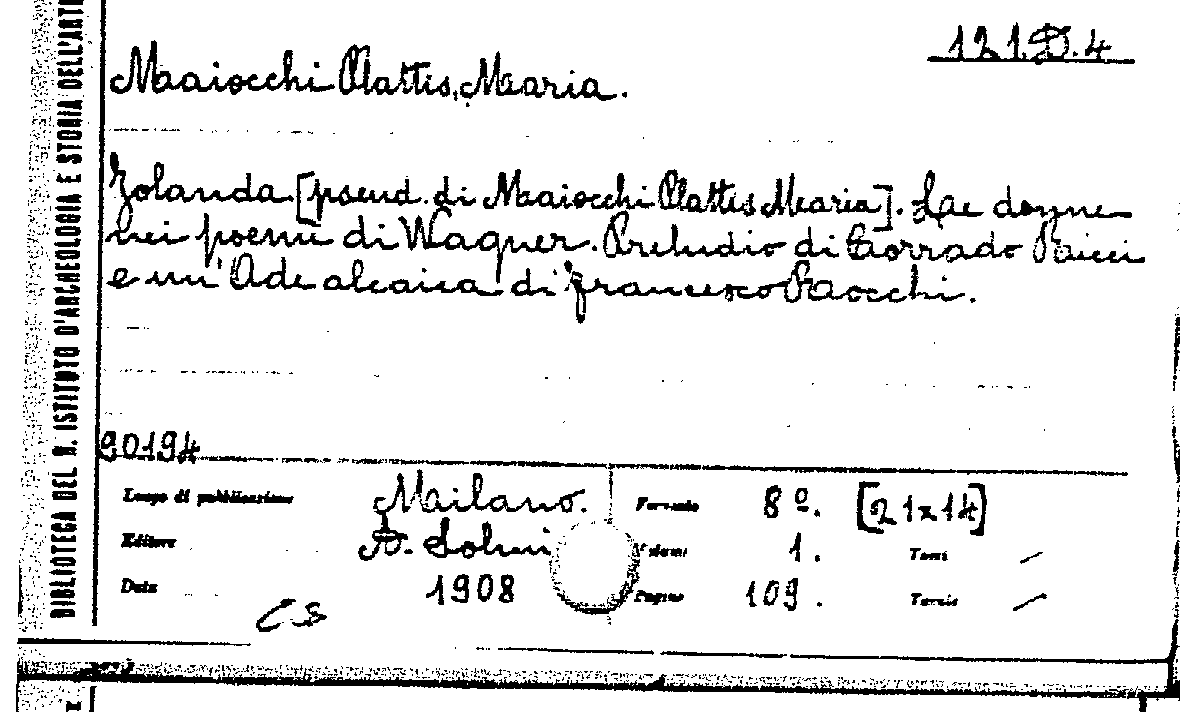 121.D.4
Maaiocchi Plattis, Maria.
Jolanda. [pseud. di Maaiocchi Plattis Maria]. Le donne
nei poemi di Wagner. Preludio di Corrado Ricci
e un'Ode alcaica di Francesco Racchi.
90194
Luogo di pubblicazione Milano. Formato 8º. [21x14]
Editore A. Solmi Volumi 1. Tomi /
Data 1908 Pagine 109. Tavole /
BIBLIOTECA DEL R. ISTITUTO D'ARCHEOLOGIA E STORIA DELL'ARTE